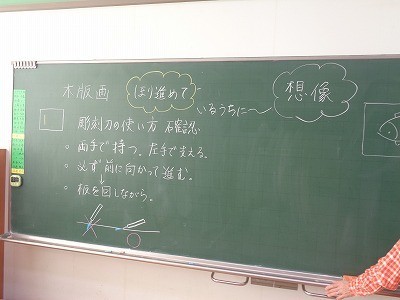 木版画 ほり進めて いるうちに〜 想像
彫刻刀の使い方 確認
○ 両手で持つ。左手で支える。
○ 必ず前に向かって進む。
○ 板を回しながら。